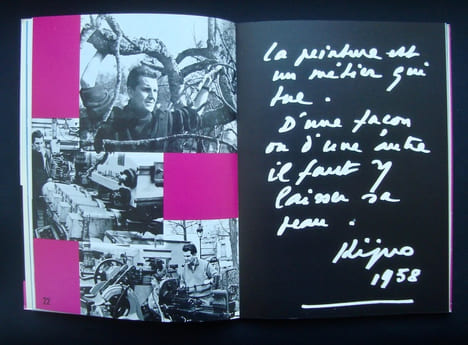 22
La peinture est
un métier qui
tue.
D'une façon
ou d'une autre
il faut y
laisser sa
peau.
Kijno
1958